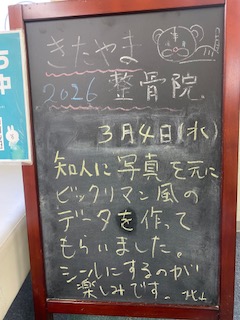 きたやま
2026 整骨院
3月4日(水)
知人に写真を元に
ビックリマン風の
データを作って
もらいました。
シールにするのが
楽しみです。
中